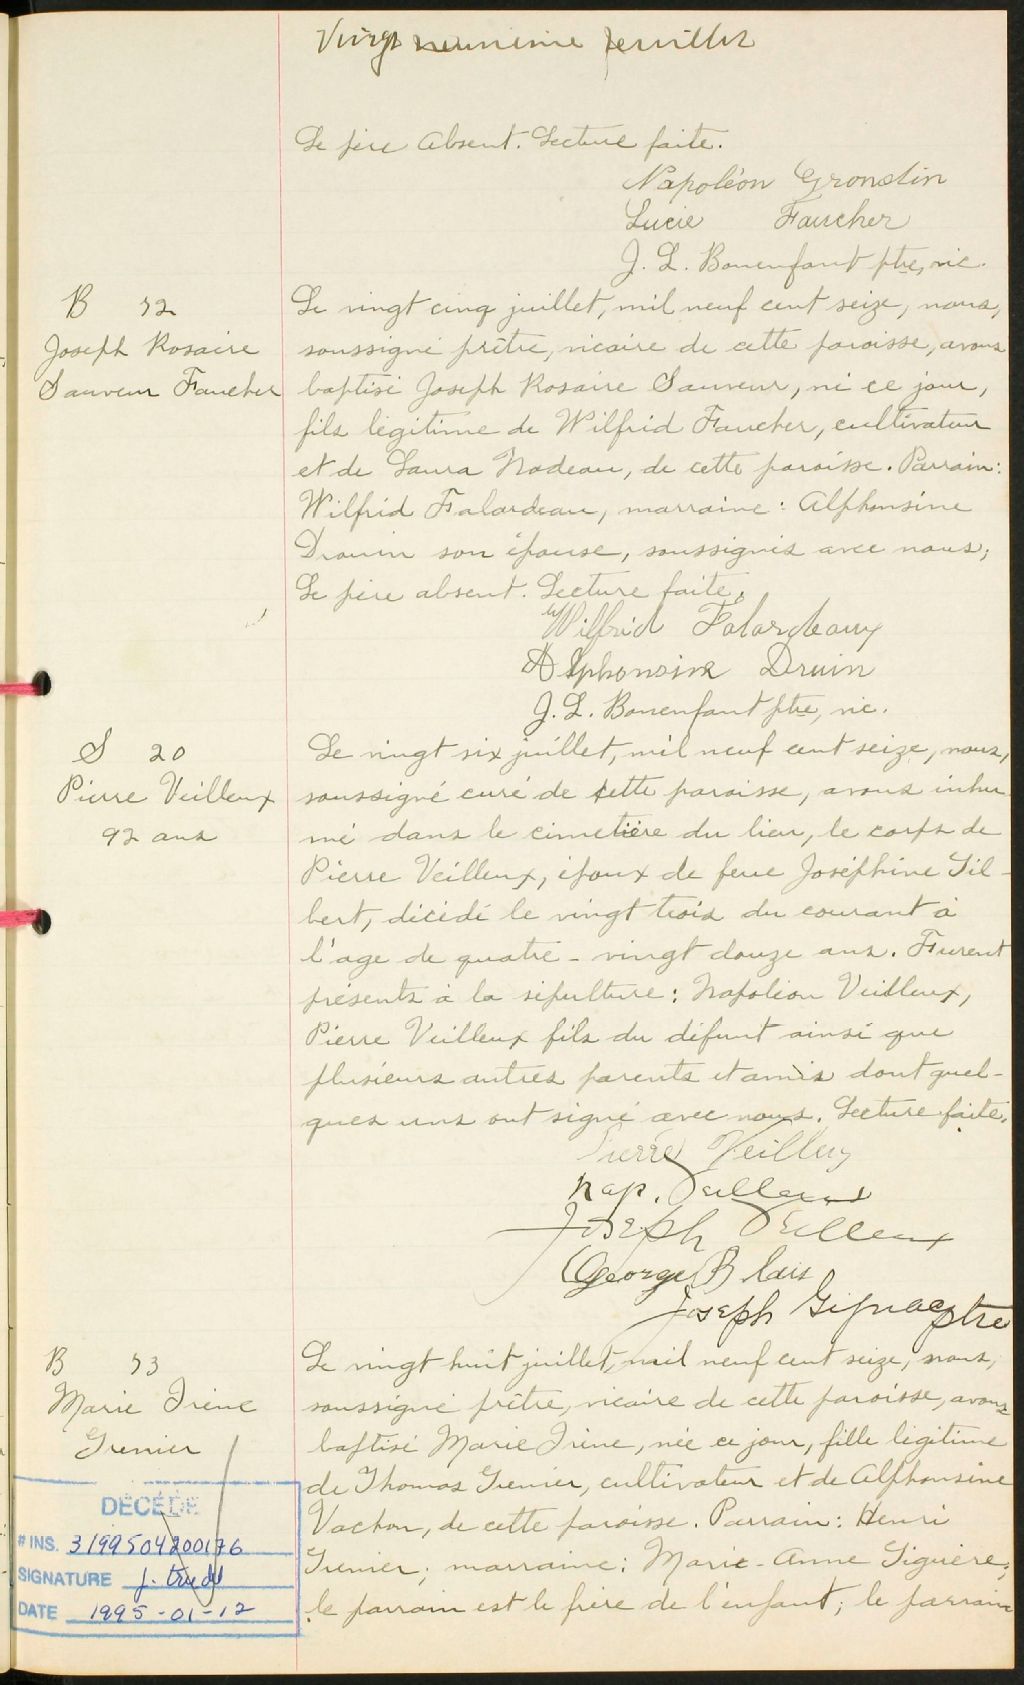 Vingt neuvième feuillet
Le père absent. Lecture faite.
Napoléon Grondin
Lucie Faucher
J. L. Bonenfant ptre, vic.
B 52
Joseph Rosaire
Sauveur Faucher
Le vingt cinq juillet, mil neuf cent seize, nous,
soussigné prêtre, vicaire de cette paroisse, avons
baptisé Joseph Rosaire Sauveur, né ce jour,
fils légitime de Wilfrid Faucher, cultivateur
et de Laura Nadeau, de cette paroisse. Parrain:
Wilfrid Falardeau, marraine: Alphonsine
Drouin son épouse, soussignés avec nous;
Le père absent. Lecture faite.
Wilfrid Falardeaux
Alphonsine Druin
J. L. Bonenfant ptre, vic.
S 20
Pierre Veilleux
92 ans
Le vingt six juillet, mil neuf cent seize, nous,
soussigné curé de cette paroisse, avons inhu-
mé dans le cimetière du lieu, le corps de
Pierre Veilleux, époux de feue Joséphine Gil-
bert, décédé le vingt trois du courant à
l'age de quatre-vingt douze ans. Furent
présents à la sépulture: Napoléon Veilleux,
Pierre Veilleux fils du défunt ainsi que
plusieurs autres parents et amis dont quel-
ques uns ont signé avec nous. Lecture faite.
Pierre Veilleux
Nap. Veilleux
Joseph Veilleux
George Blais
Joseph Gignac ptre
B 53
Marie Irène
Grenier
Le vingt huit juillet, mil neuf cent seize, nous,
soussigné prêtre, vicaire de cette paroisse, avons
baptisé Marie Irène, née ce jour, fille légitime
de Thomas Grenier, cultivateur et de Alphonsine
Vachon, de cette paroisse. Parrain: Henri
Grenier; marraine: Marie-Anne Giguère;
le parrain est le frère de l'enfant; le parrain
DÉCÉDÉ
# INS. 3199504200176
SIGNATURE J. Trudel
DATE 1995-01-12